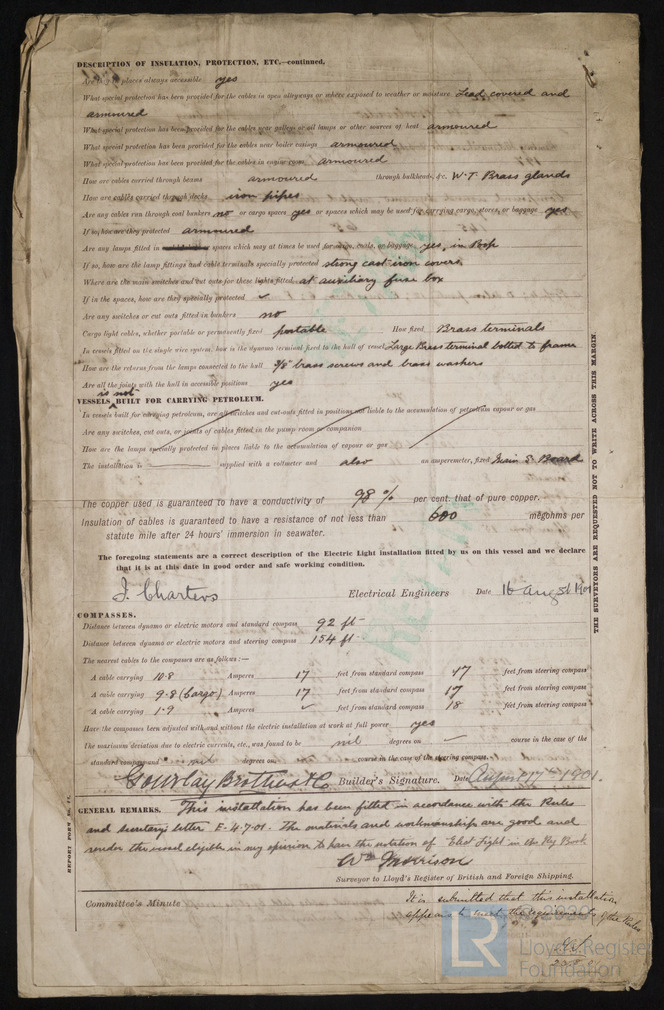 DESCRIPTION OF INSULATION, PROTECTION, ETC.—continued.
Are they in places always accessible yes
What special protection has been provided for the cables in open alleyways or where exposed to weather or moisture Lead covered and
armoured
What special protection has been provided for the cables near galleys or oil lamps or other sources of heat armoured
What special protection has been provided for the cables near boiler casings armoured
What special protection has been provided for the cables in engine room armoured
How are cables carried through beams armoured through bulkheads, &c. W.T. Brass glands
How are cables carried through decks iron pipes
Are any cables run through coal bunkers no or cargo spaces yes or spaces which may be used for carrying cargo, stores, or baggage yes
If so, how are they protected armoured
Are any lamps fitted in spaces which may at times be used for cargo, coals, or baggage yes, in Poop
If so, how are the lamp fittings and cable terminals specially protected strong cast iron covers
Where are the main switches and cut outs for these lights fitted at auxiliary fuse box
If in the spaces, how are they specially protected ✓
Are any switches or cut outs fitted in bunkers no
Cargo light cables, whether portable or permanently fixed portable How fixed Brass terminals
In vessels fitted on the single wire system, how is the dynamo terminal fixed to the hull of vessel Large Brass terminal bolted to frame
How are the returns from the lamps connected to the hull 3/8" brass screws and brass washers
Are all the joints with the hull in accessible positions yes
is not
VESSELS BUILT FOR CARRYING PETROLEUM.
In vessels built for carrying petroleum, are all switches and cut-outs fitted in positions not liable to the accumulation of petroleum vapour or gas
Are any switches, cut outs, or joints of cables fitted in the pump room or companion
How are the lamps specially protected in places liable to the accumulation of vapour or gas
The installation is supplied with a voltmeter and also an amperemeter, fixed Main S. Board
The copper used is guaranteed to have a conductivity of 98 % per cent. that of pure copper.
Insulation of cables is guaranteed to have a resistance of not less than 600 megohms per
statute mile after 24 hours' immersion in seawater.
The foregoing statements are a correct description of the Electric Light installation fitted by us on this vessel and we declare
that it is at this date in good order and safe working condition.
J. Charters Electrical Engineers Date 16 August 1901
COMPASSES.
Distance between dynamo or electric motors and standard compass 92 ft
Distance between dynamo or electric motors and steering compass 154 ft
The nearest cables to the compasses are as follows:—
A cable carrying 10.8 Amperes 17 feet from standard compass 17 feet from steering compass
A cable carrying 9.8 (Cargo) Amperes 17 feet from standard compass 17 feet from steering compass
A cable carrying 1.9 Amperes ✓ feet from standard compass 18 feet from steering compass
Have the compasses been adjusted with and without the electric installation at work at full power yes
The maximum deviation due to electric currents, etc., was found to be nil degrees on ✓ course in the case of the
standard compass and nil degrees on course in the case of the steering compass.
Gourlay Brothers & Co Builder's Signature. Date August 17th 1901.
GENERAL REMARKS. This installation has been fitted in accordance with the Rules
and secretary's letter E. 4.7.01. The materials and workmanship are good and
render the vessel eligible in my opinion to have the notation of Elect Light in the Reg Book
Wm Morrison
Surveyor to Lloyd's Register of British and Foreign Shipping.
Committee's Minute
It is submitted that this installation
appears to meet the requirements of the Rules
THE SURVEYORS ARE REQUESTED NOT TO WRITE ACROSS THIS MARGIN.
LR
© 2020
Lloyd's Register
Foundation